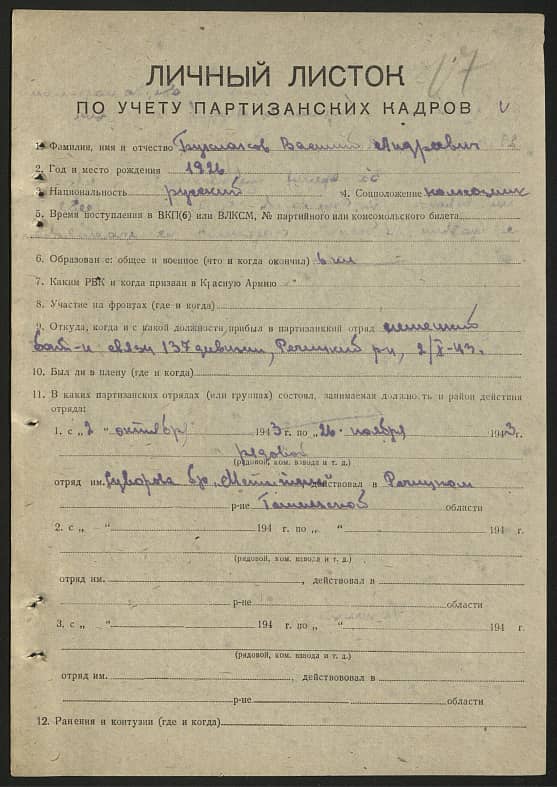 17
ЛИЧНЫЙ ЛИСТОК
ПО УЧЕТУ ПАРТИЗАНСКИХ КАДРОВ
1. Фамилия, имя и отчество Василий Андреевич
2. Год и место рождения 1926
3. Национальность русский 4. Соцположение колхозник
5. Время поступления в ВКП(б) или ВЛКСМ, № партийного или комсомольского билета
6. Образование: общее и военное (что и когда окончил) 6 кл
7. Каким РВК и когда призван в Красную Армию
8. Участие на фронтах (где и когда)
9. Откуда, когда и с какой должности прибыл в партизанский отряд немецкий
бат-н связи 137 дивизии, Речицкий р-н, 2/X-43г.
10. Был ли в плену (где и когда)
11. В каких партизанских отрядах (или группах) состоял, занимаемая должность и район действия
отряда:
1. с „2" октября 1943 г. по „26" ноября 1943 г.
рядовой
(рядовой, ком. взвода и т. д.)
отряд им. Суворова бр. „Мститель" действовал в Речицком
р-не Гомельской области
2. с „ " 194 г. по „ " 194 г.
(рядовой, ком. взвода и т. д.)
отряд им. , действовал в
р-не области
3. с „ " 194 г. по „ " 194 г.
(рядовой, ком. взвода и т. д.)
отряд им. , действовал в
р-не области
12. Ранения и контузии (где и когда)